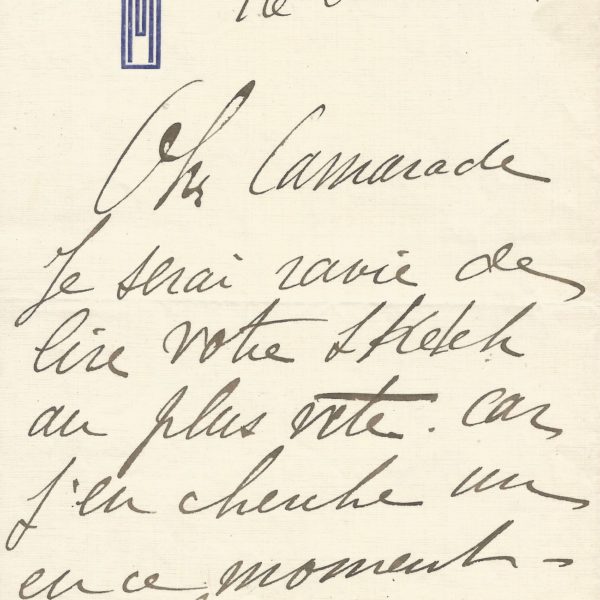 16
Cher Camarade
Je serai ravie de
lire votre sketch
au plus vite. car
j'en cherche un
en ce moment -